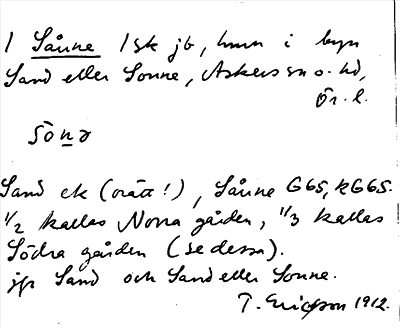 1 Sånne 1 sk jb, hmn i byn
Sand eller Sonne, Askers sn o. hd,
Ör. l.
sönə
Sand ek (orätt!), Sånne G65, RG65.
1/2 kallas Norra gården, 1/3 kallas
Södra gården (se dessa).
jfr Sand och Sand eller Sonne.
T. Ericsson 1912.